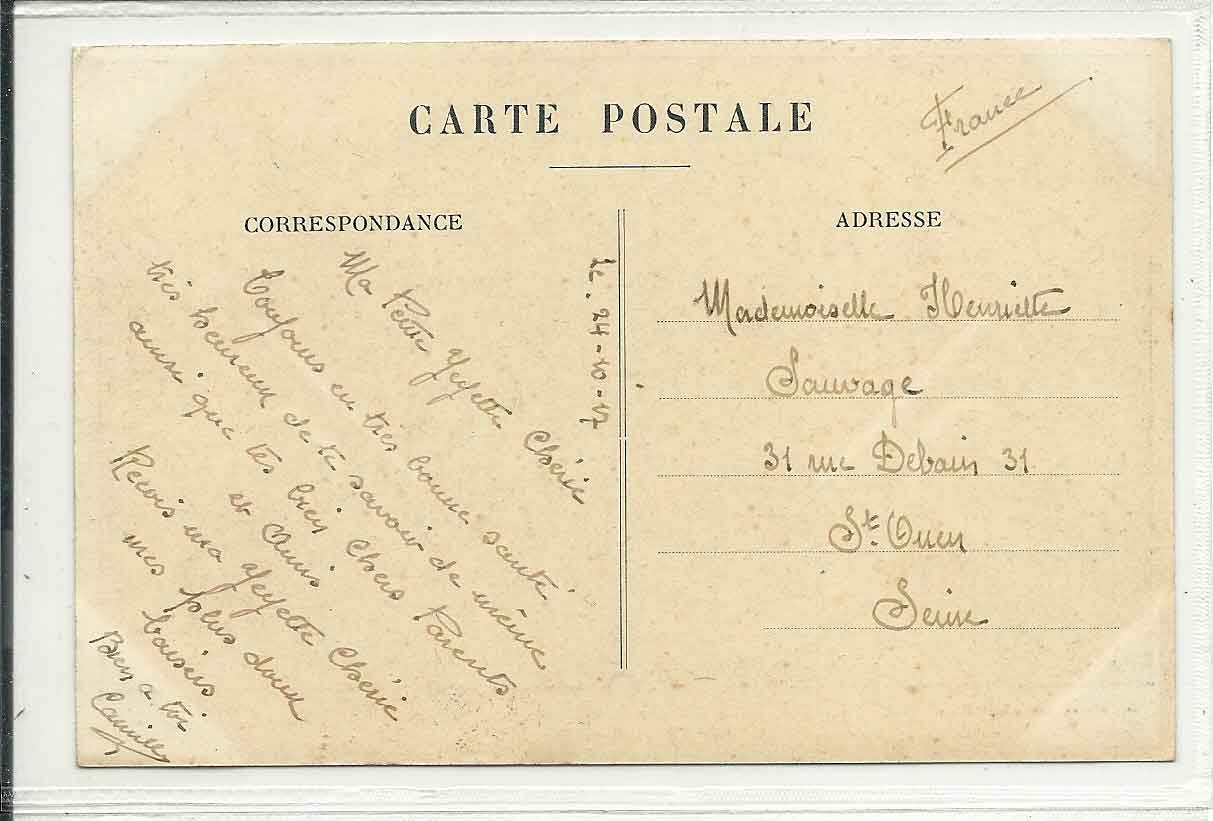 CARTE POSTALE
France
CORRESPONDANCE
Le. 24-10-17
Ma Petite Yeyette Chérie
Toujours en très bonne santé
très heureux de te savoir de même
ainsi que tes bien chers Parents
et Amis
Reçois ma Yeyette Chérie
mes plus doux
baisers
Bien a toi
Camille
ADRESSE
Mademoiselle Henriette
Sauvage
31 rue Debain 31
St. Ouen
Seine